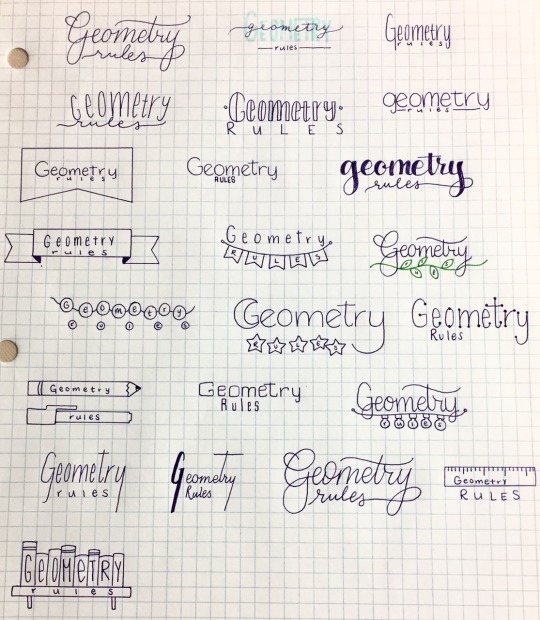 Geometry
rules
GEOMETRY
geometry
rules
Geometry
rules
Geometry
rules
Geometry
RULES
geometry
rules
Geometry
rules
Geometry
RULES
geometry
rules
Geometry
rules
Geometry
RULES
Geometry
rules
Geometry
rules
Geometry
RULES
Geometry
Rules
Geometry
rules
Geometry
Rules
Geometry
rules
Geometry
rules
Geometry
Rules
Geometry
rules
Geometry
RULES
GEOMETRY
rules